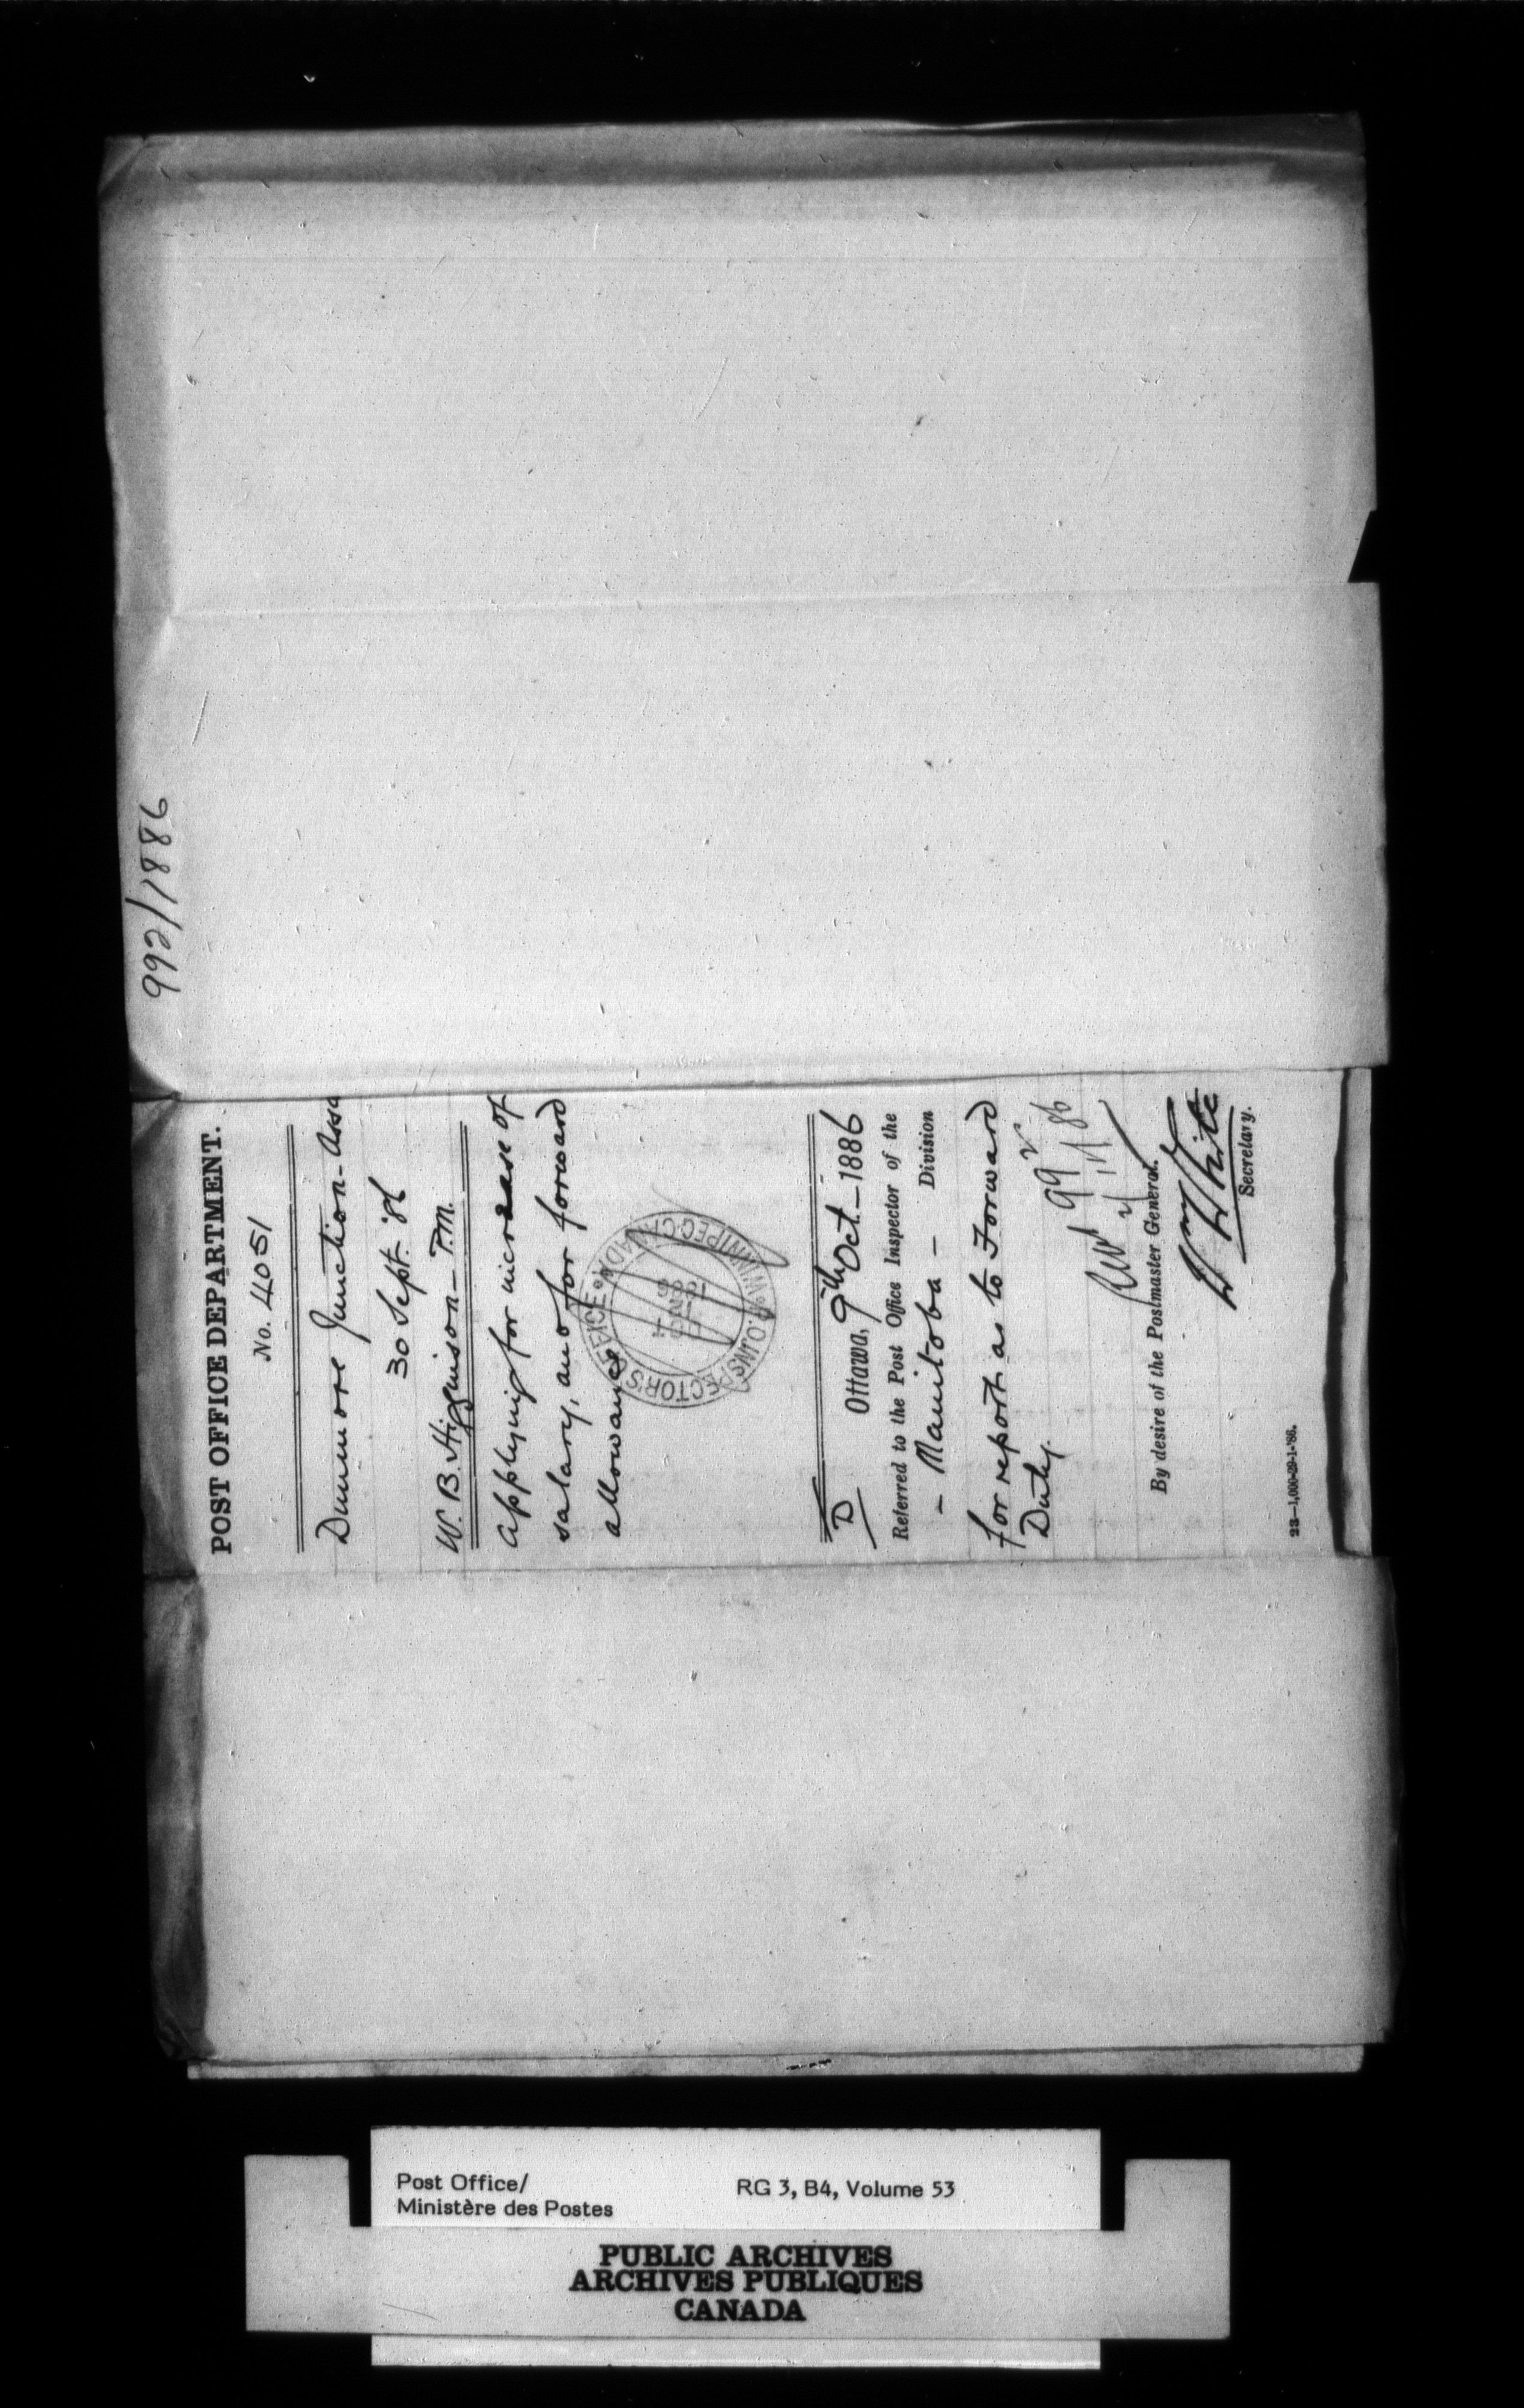 992/1886
POST OFFICE DEPARTMENT.
No. 4051
Dunmore Junction - Assa
30 Sept. '86
W. B. Higginson - P.M.
Applying for increase of
salary, and for forward
allowance
P.O. INSPECTOR'S OFFICE
WINNIPEG. CANADA
1886
D
Ottawa, 9th Oct - 1886
Referred to the Post Office Inspector of the
- Manitoba - Division
for report as to Forward
Duty.
992
86
By desire of the Postmaster General.
Wm White
Secretary.
23—1,000-29-1-'86.
Post Office/
Ministère des Postes
RG 3, B4, Volume 53
PUBLIC ARCHIVES
ARCHIVES PUBLIQUES
CANADA